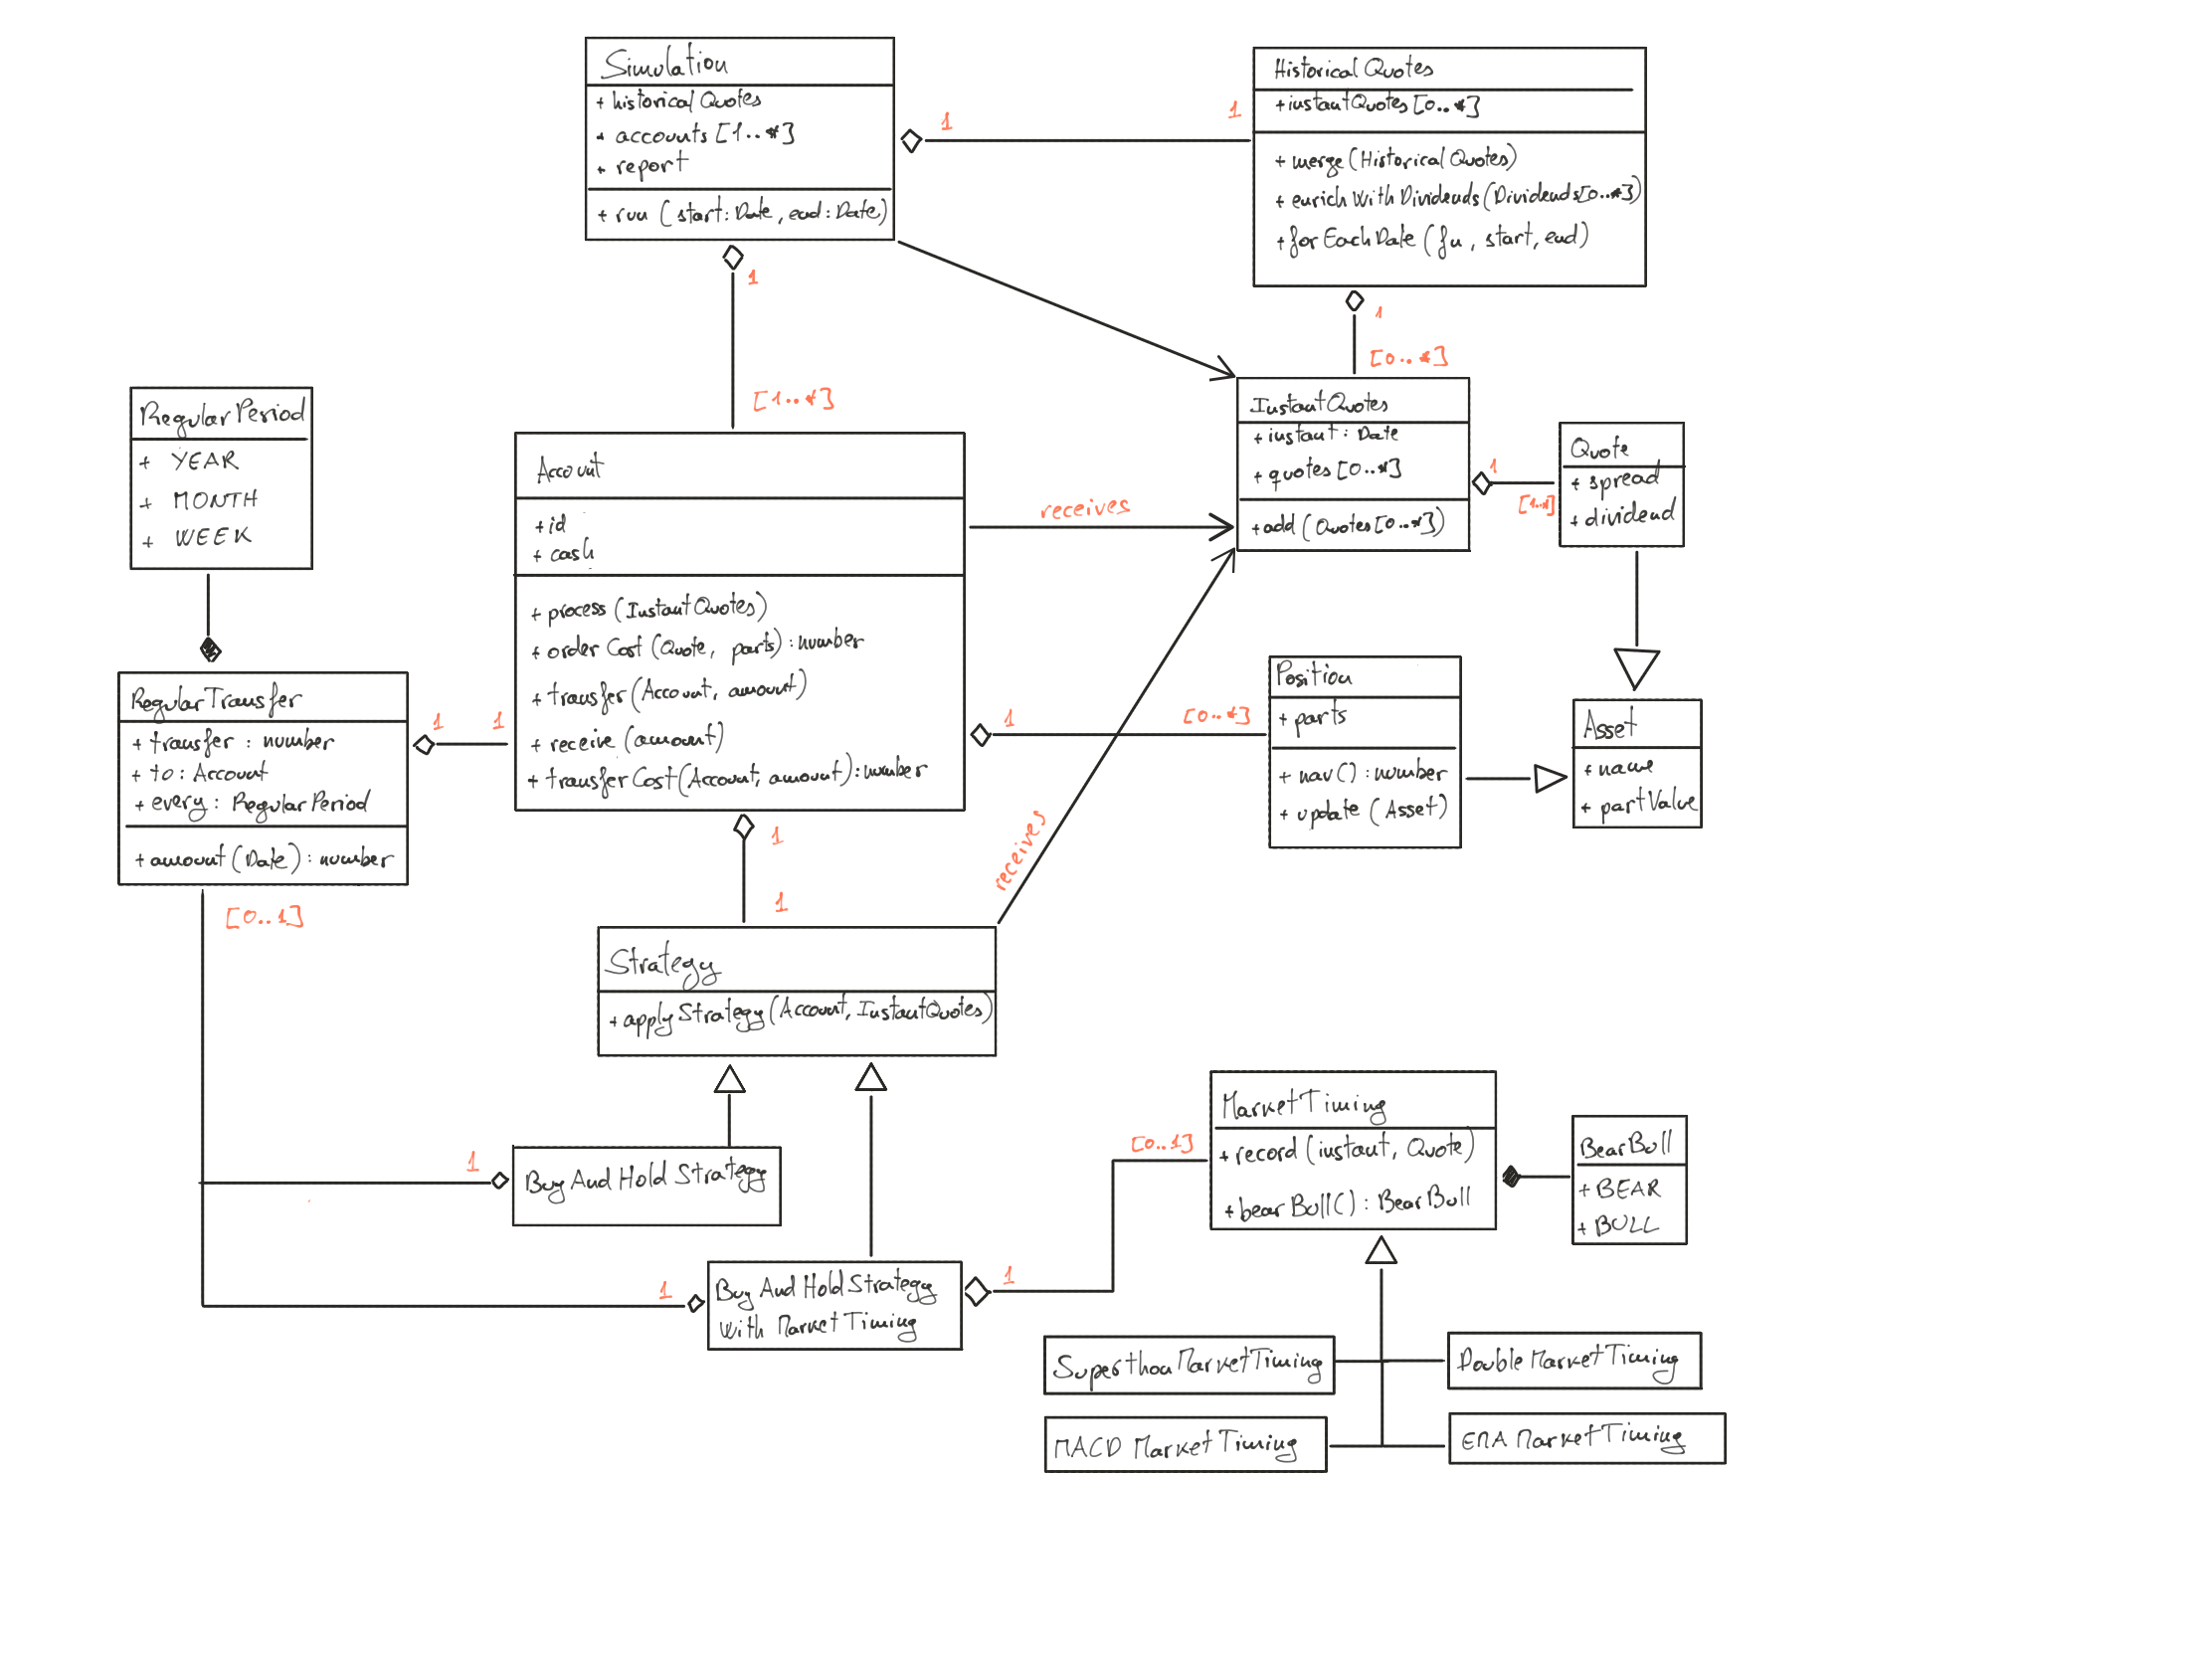 Simulation
+ historicalQuotes
+ accounts [1..*]
+ report
+ run (start: Date, end: Date)
1
1
1
[1..*]
HistoricalQuotes
+ instantQuotes [0..*]
+ merge (HistoricalQuotes)
+ enrichWithDividends (Dividends[0..*])
+ forEachDate (fn, start, end)
1
[0..*]
RegularPeriod
+ YEAR
+ MONTH
+ WEEK
Account
+ id
+ cash
+ process (InstantQuotes)
+ orderCost (Quote, parts): number
+ transfer (Account, amount)
+ receive (amount)
+ transferCost (Account, amount): number
receives
InstantQuotes
+ instant: Date
+ quotes [0..*]
+ add (Quotes[0..*])
1
[1..*]
Quote
+ spread
+ dividend
RegularTransfer
+ transfer : number
+ to : Account
+ every : RegularPeriod
+ amount (Date) : number
1
1
[0..1]
1
[0..*]
Position
+ parts
+ nav() : number
+ update (Asset)
Asset
+ name
+ partValue
1
1
receives
Strategy
+ applyStrategy (Account, InstantQuotes)
1
Buy And Hold Strategy
1
Buy And Hold Strategy
With Market Timing
1
[0..1]
MarketTiming
+ record (instant, Quote)
+ bearBull() : BearBull
BearBull
+ BEAR
+ BULL
SuperthonMarketTiming
DoubleMarketTiming
MACD MarketTiming
EMA MarketTiming